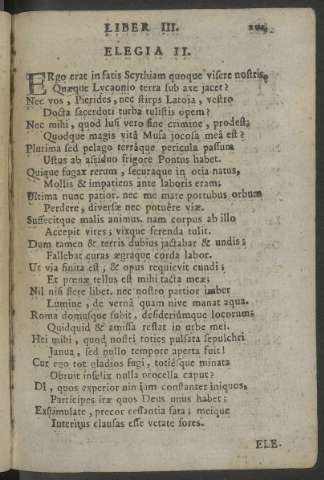 LIBER III.
ELEGIA II.
ERgo erat in fatis Scythiam quoque visere nostris,
Quæque Lycaonio terra sub axe jacet?
Nec vos, Pierides, nec stirps Latoia, vestro
Docta sacerdoti turba tulistis opem?
Nec mihi, quod lusi vero sine crimine, prodest;
Quodque magis vitâ Musa jocosa meâ est?
Plurima sed pelago terrâque pericula passum
Ustus ab assiduo frigore Pontus habet.
Quique fugax rerum, securaque in otia natus,
Mollis & impatiens ante laboris eram;
Ultima nunc patior. nec me mare portubus orbum
Perdere, diversæ nec potuêre viæ.
Suffecitque malis animus. nam corpus ab illo
Accepit vires; vixque ferenda tulit.
Dum tamen & terris dubius jactabar & undis;
Fallebat curas ægraque corda labor.
Ut via finita est, & opus requievit eundi;
Et pœnæ tellus est mihi tacta meæ;
Nil nisi flere libet. nec nostro parcior imber
Lumine, de vernâ quam nive manat aqua.
Roma domusque subit, desideriumque locorum;
Quidquid & amissa restat in urbe mei.
Hei mihi, quod nostri toties pulsata sepulchri
Janua, sed nullo tempore aperta fuit!
Cur ego tot gladios fugi, totiesque minata
Obruit infelix nulla procella caput?
Dî, quos experior nimium constanter iniquos,
Participes iræ quos Deus unus habet;
Exstimulate, precor cessantia fata; meique
Interitus clausas esse vetate fores.
ELE-